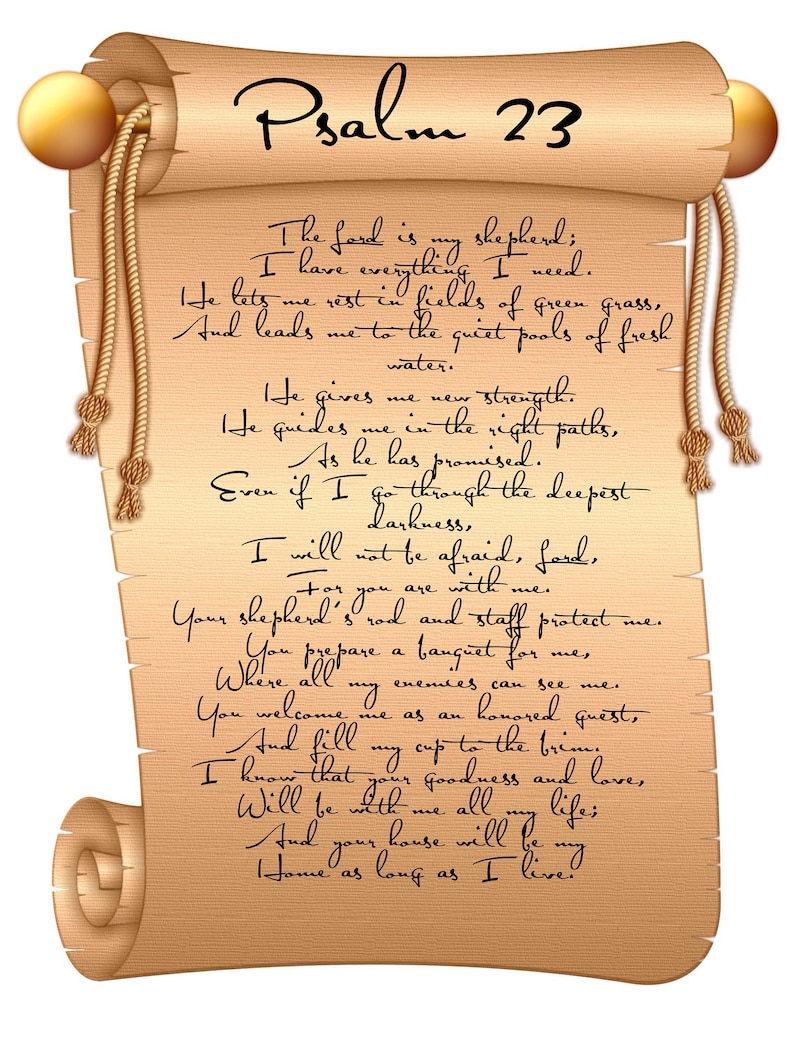 Psalm 23
The Lord is my shepherd;
I have everything I need.
He lets me rest in fields of green grass,
And leads me to the quiet pools of fresh
water.
He gives me new strength.
He guides me in the right paths,
As he has promised.
Even if I go through the deepest
darkness,
I will not be afraid, Lord,
For you are with me.
Your shepherd's rod and staff protect me.
You prepare a banquet for me,
Where all my enemies can see me.
You welcome me as an honored guest,
And fill my cup to the brim.
I know that your goodness and love,
Will be with me all my life;
And your house will be my
Home as long as I live.